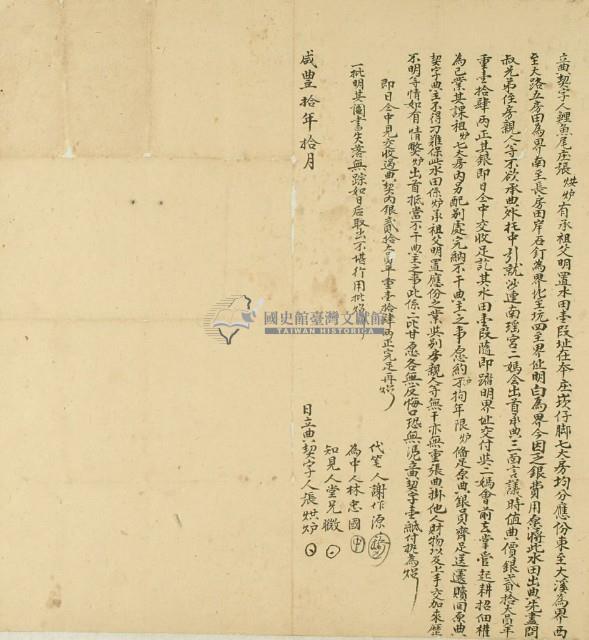 立典契字人鯉魚尾庄張烘炉有承祖父明置水田壹段址在本庄崁仔脚七大房均分應份東至大溪為界西
至大路五房田為界南至長房田岸石釘為界北至坑四至界址明白為界今因乏銀費用愿將此水田出典先盡問
叔兄弟侄房親人等不欲承典外托中引就沙連南瑶宮二媽会出首承典三面言議時值典價銀貳拾大員平
重壹拾肆兩正其銀即日仝中交收足訖其水田壹段隨即踏明界址交付與二媽會前去掌管起耕招佃權
為己業其課祖炉七大房內另配別處完納不干典主之事愿約不拘年限炉偹足原典銀員齊足送還贖回原典
契字典主不得刁難保此水田係炉承祖父明置應份之業與別房親人等無干亦無重張典掛他人財物以及上手交加來歷
不明等情如有情弊炉出首抵當不干典主之事此係二比甘愿各無反悔口恐無凭立典契字壹紙付执為炤
即日仝中見交收過典契內銀貳拾大員平重壹拾肆兩正完足再炤
一批明其圖書失落無踪如日后取出不堪行用批炤
代笔人謝作源
為中人林忠國
知見人堂兄徽
咸豐拾年拾月
日立典契字人張烘炉
國史館臺灣文獻館
TAIWAN HISTORICA